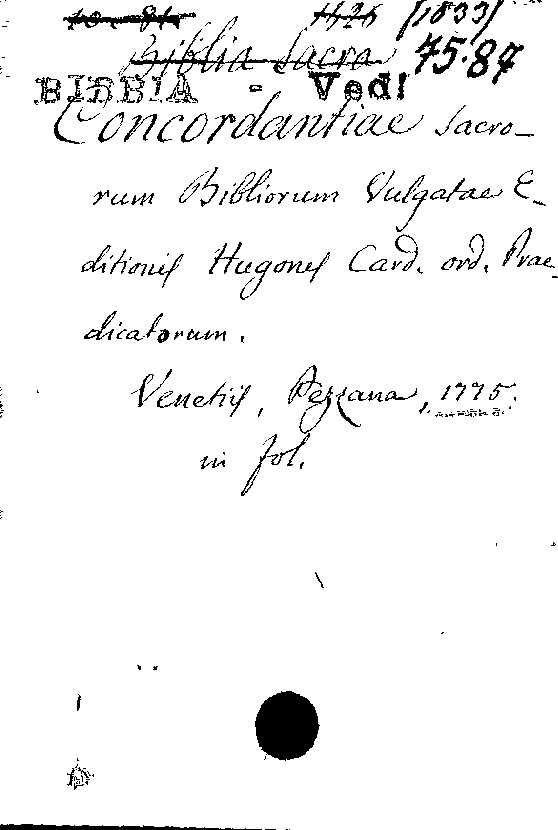 1426 (1833)
Biblia Sacra 75.87
BIBBIA - Vedi
Concordantiae Sacro-
rum Bibliorum Vulgatae E-
ditionis Hugones Card. ord. Prae-
dicatorum.
Venetiis, Pezzana, 1775.
in fol.